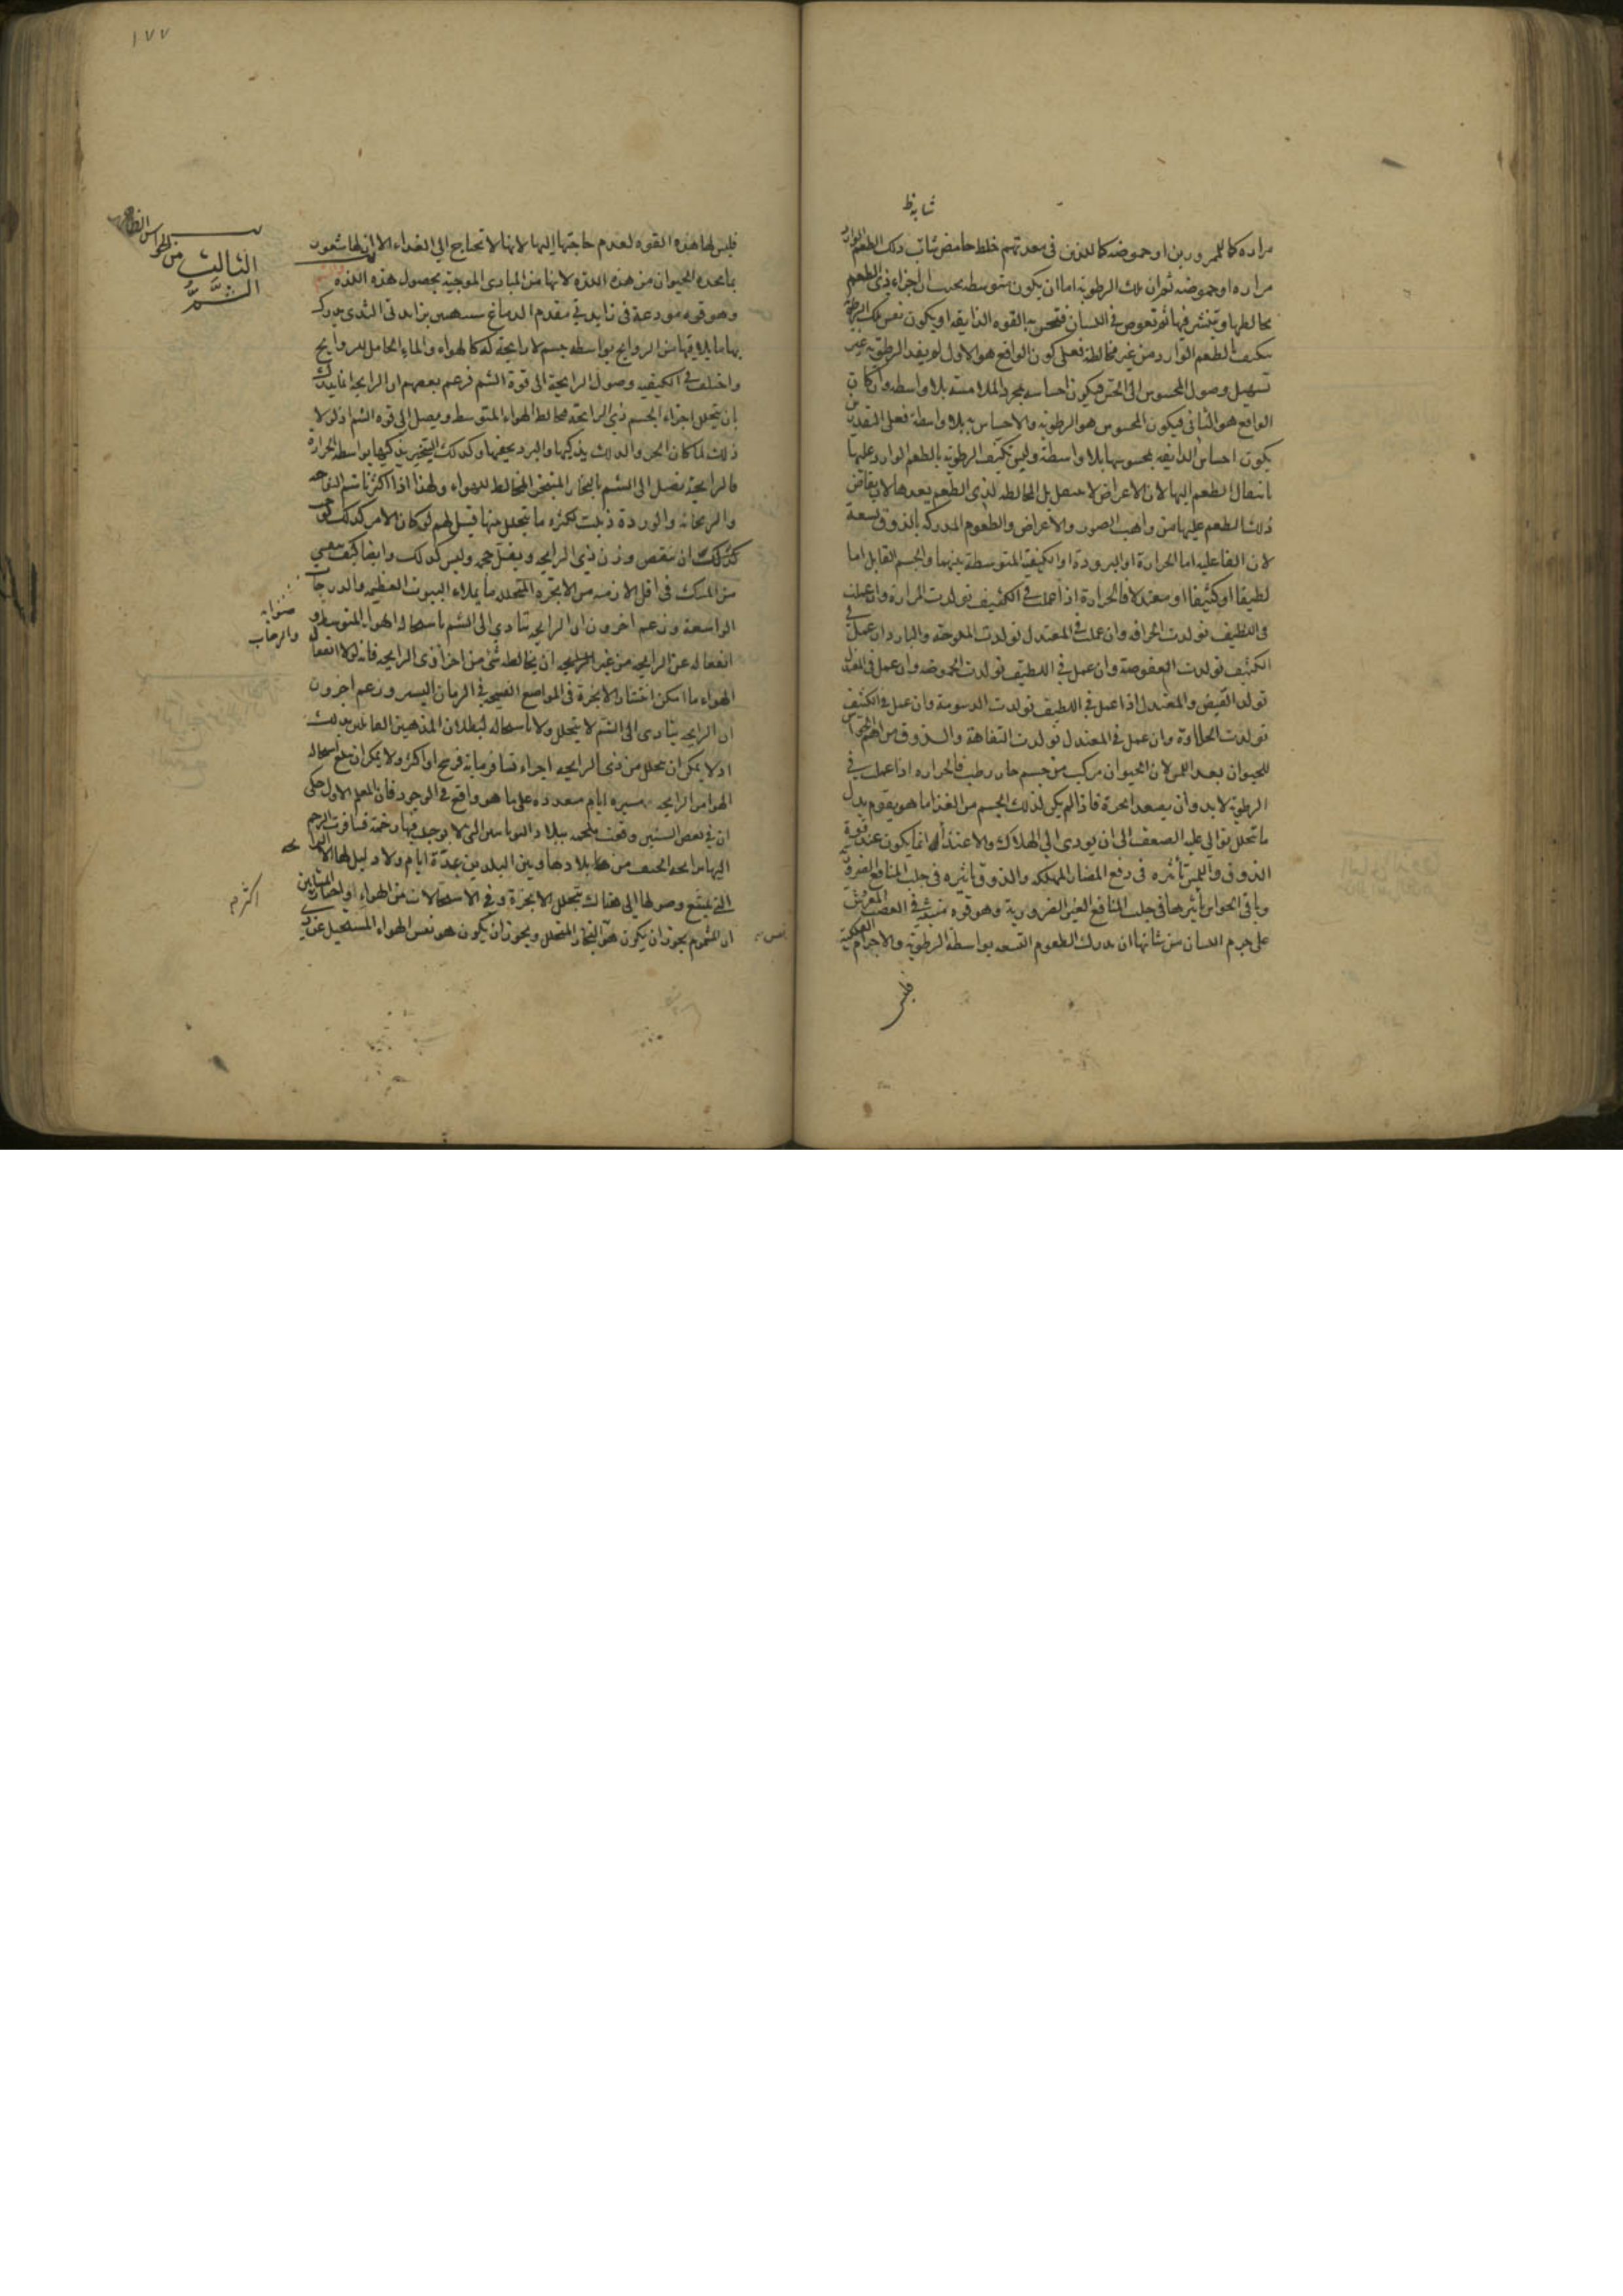 شابه ظ
مراره كالممرورين او حموضه كالذين فى معدتهم خلط حامض شاب ذلك الطعم الوارد
مراره او حموضه ثم ان تلك الرطوبة اما ان يكون متوسطه بحسب ان اجزاء ذى الطعم
يخالطها وتنتشر فيها ثم تغوص فى اللسان فتحس به القوه الذايقه او يكون نفس تلك الرطوبة
تتكيف بالطعم الوارد من غير مخالطة فعلى كون الواقع هو الاول لم يفد الرطوبة غير
تسهيل وصول المحسوس الى الحس فيكون احساسه بمجرد الملامسة بلا واسطه وان كان
الواقع هو الثانى فيكون المحسوس هو الرطوبة والاحساس به بلا واسطة فعلى التقديرين
يكون احساس الذايقه بمحسوسها بلا واسطة وليس تكيف الرطوبة بالطعم الوارد عليها
بانتقال الطعم اليها لان الاعراض لا تنتقل بل المخالطه لذى الطعم يعدها لان يفاض
ذلك الطعم عليها من واهب الصور والاعراض والطعوم المدركه بالذوق تسعة
لان الفاعليه اما الحرارة او البرودة او الكيفية المتوسطة بينهما والجسم القابل اما
لطيفا او كثيفا او معتدلا فالحرارة اذا عملت فى الكثيف تولدت المرارة وان عملت
فى اللطيف تولدت الحرافه وان عملت فى المعتدل تولدت الملوحة والبارد ان عمل فى
الكثيف تولدت العفوصة وان عمل فى اللطيف تولدت الحموضه وان عمل فى المعتدل
تولد القبض والمعتدل اذا عمل فى اللطيف تولدت الدسومة وان عمل فى الكثيف
تولدت الحلاوة وان عمل فى المعتدل تولدت التفاهة والذوق من اهم الحواس
للحيوان بعد اللمس لان الحيوان مركب من جسم حار رطب فالحراره اذا عملت فى
الرطوبة لا بد وان يصعد ابخرة فاذا لم يكن لذلك الجسم من الغذا ما هو يقوم بدل
ما تحلل توالى عليه الضعف الى ان يودى الى الهلاك والاغتذاء انما يكون عند قوة
الذوق واللمس تأثيره فى دفع المضار المهلكه والذوق تاثيره فى جلب المنافع الضرورية
وباقى الحواس تأثيرها فى جلب المنافع الغير الضرورية وهو قوه منبثة فى العصب المفروش
على جرم اللسان من شانها ان يدرك الطعوم التسعه بواسطة الرطوبة والاجرام الفلكية
فليس
١٧٧
الثالث من الحواس الظاهره
الشمّ
فليس لها هذه القوه لعدم حاجتها اليها لانها لا تحتاج الى الغداء الا ان لها شعور
بما يجده الحيوان من هذه اللذه لانها من المبادى الموجبة بحصول هذه اللذه
وهو قوه مودعة فى زايدتى مقدم الدماغ شبيهتين بزايدتى الثدى يدرك
بها ما يلاقيها من الروايح بواسطه جسم لا رايحة له كالهواء والماء الحامل للروايح
واختلف فى الكيفيه وصول الرايحة الى قوة الشم فزعم بعضهم ان الرايحه انما يدرك
بان يتحلل اجزاء الجسم ذى الرايحة يخالط الهواء المتوسط ويصل الى قوه الشم اذ لولا
ذلك لما كان الحر والدلك يذكيها والبرد يخفيها وكذلك التبخير يذكيها بواسطه الحراره
فالرايحة يصل الى الشم بالبخار المتبخر المخالط للهواء ولهذا اذا اكثرنا شم التفاحه
والريحانه والوردة ذبلت لكثره ما يتحلل منها قيل لهم لو كان الامر كذلك لوجب
كذلك ان ينقص وزن ذى الرايحه ويقل حجمه وليس كذلك وايضا كيف يبقى
من المسك فى اقل الازمنه من الابخره المتحلله ما يملاء البيوت العظيمه والدرجات
والرحاب
الواسعة وزعم اخرون ان الرايحه تتادى الى الشم باستحاله الهواء المتوسط و
انفعاله عن الرايحه من غير ان يخالطه شئ من اجزا ذى الرايحه فانه لولا انفعال
الهواء ما امكن انتشار الابخرة فى المواضع الفسيحه فى الزمان اليسير وزعم اخرون
ان الرايحه يتادى الى الشم لا بتحلل ولا باستحاله لبطلان المذهبين القائلين بذلك
اذ لا يمكن ان يتحلل من ذى الرايحه اجزاء تسافر ماية فرسخ او اكثر ولا يمكن ان يبلغ استحاله
الهوا من الرايحه مسيره ايام معدوده على ما هو واقع فى الوجود فان المعلم الاول حكى
ان فى بعض السنين وقعت ملحمه ببلاد اليونانيين التى لا يوجد فيها رخمة فسافرت الرخم
اليها من رايحه الجيف من بلادها وبين البلدين عدة ايام ولا دليل لها الا الرايحه
التى يمتنع وصولها الى هناك بتحلل الابخرة وفى الاستحالات من الهواء
اكثرهم
ان المشموم يجوز ان يكون هو البخار المتحلل ويجوز ان يكون هو نفس الهواء المستحيل عن ذى